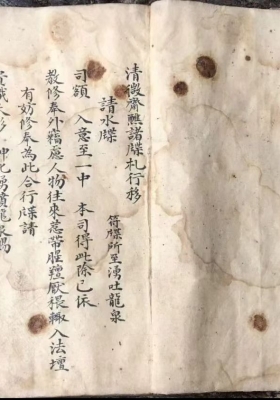 清微齋醮諸牒札行移
請水牒
符牒所至湧吐龍泉
司額 入意至一中 本司得此除已依
教修奉外竊慮人物往來惹帶腥羶厭穢輙入法壇
有妨修奉為此合行牒請